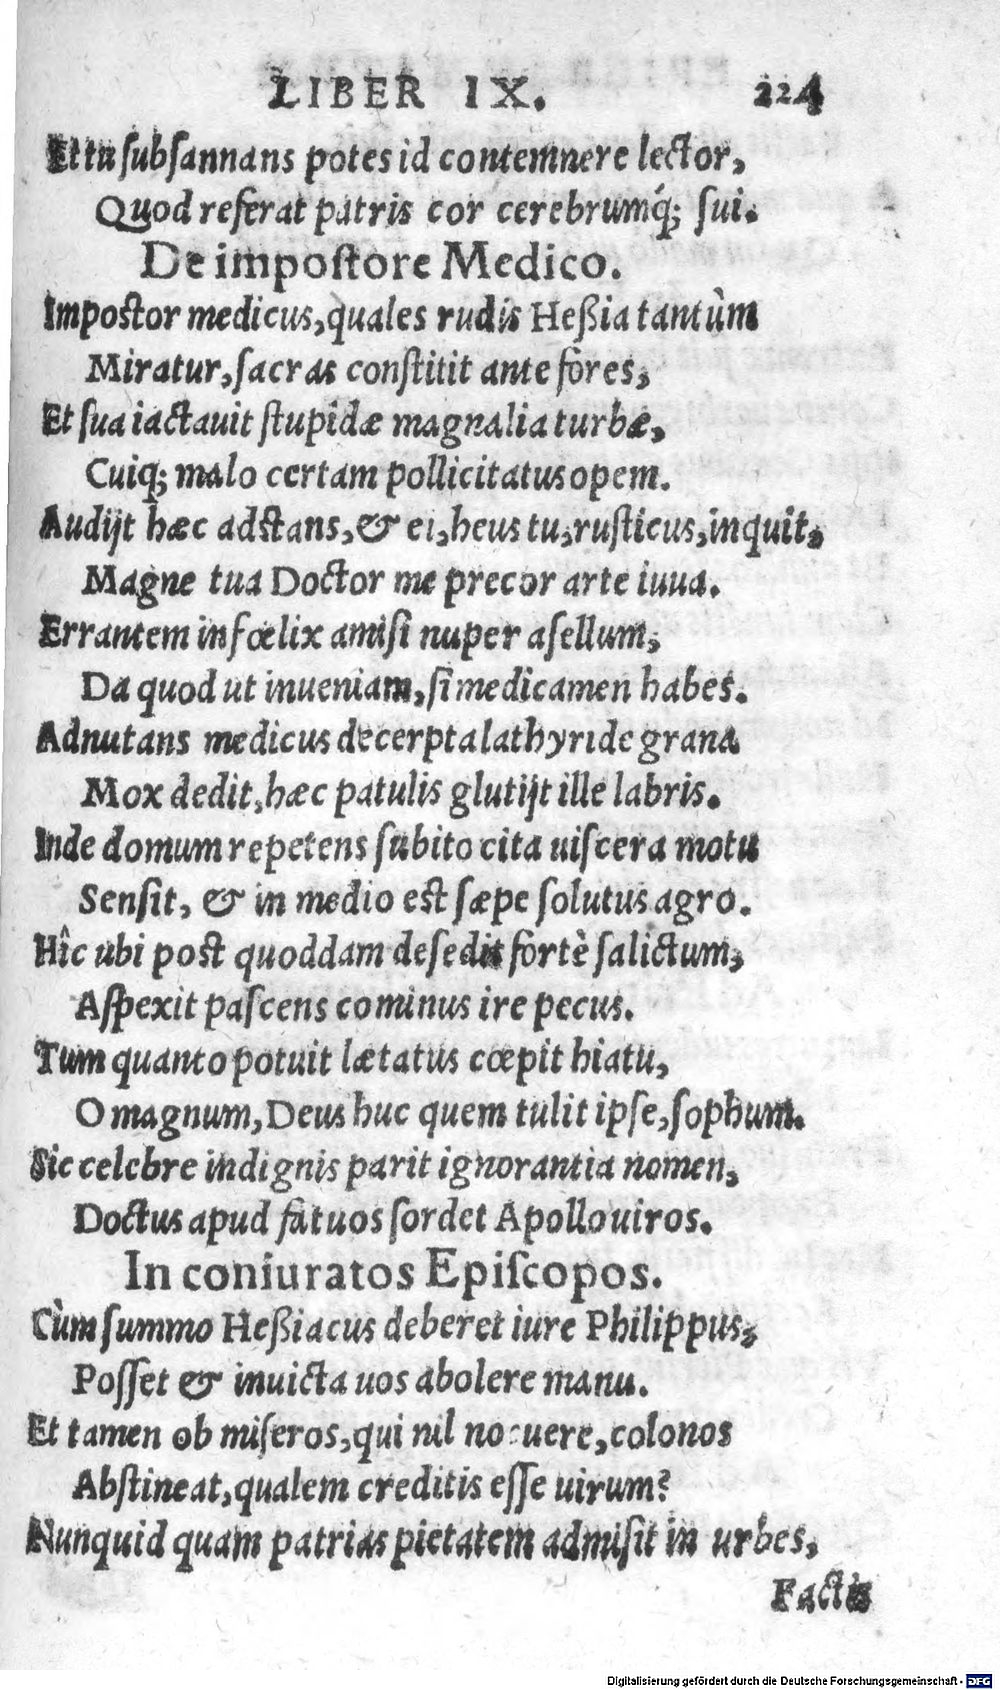 LIBER IX. 224
Et tu subſannans potes id contemnere lector,
Quod referat patris cor cerebrumq́; ſui.
De impoſtore Medico.
Impoſtor medicus, quales rudis Heßia tantùm
Miratur, ſacras conſtitit ante fores,
Et ſua iactauit ſtupidæ magnalia turbæ,
Cuiq; malo certam pollicitatus opem.
Audijt hæc adſtans, & ei, heus tu, ruſticus, inquit,
Magne tua Doctor me precor arte iuua.
Errantem infœlix amiſi nuper aſellum,
Da quod ut inueniam, ſi medicamen habes.
Adnutans medicus decerpta lathyride grana
Mox dedit, hæc patulis glutijt ille labris.
Inde domum repetens ſubito cita uiſcera motu
Sensit, & in medio eſt ſæpe ſolutus agro.
Hîc ubi poſt quoddam deſedit fortè ſalictum,
Aſpexit paſcens cominus ire pecus.
Tum quanto potuit lætatus cœpit hiatu,
O magnum, Deus huc quem tulit ipſe, ſophum.
Sic celebre indignis parit ignorantia nomen,
Doctus apud fatuos ſordet Apollo uiros.
In coniuratos Epiſcopos.
Cùm ſummo Heßiacus deberet iure Philippus,
Poſſet & inuicta uos abolere manu.
Et tamen ob miſeros, qui nil nocuere, colonos
Abſtineat, qualem creditis eſſe uirum?
Nunquid quam patrias pietatem admiſit in urbes,
Factis
Digitalisierung gefördert durch die Deutsche Forschungsgemeinschaft - DFG